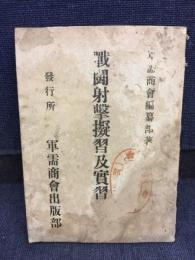 軍需商會編纂部著
戰鬪射擊擬習及實習
發行所
軍需商會出版部